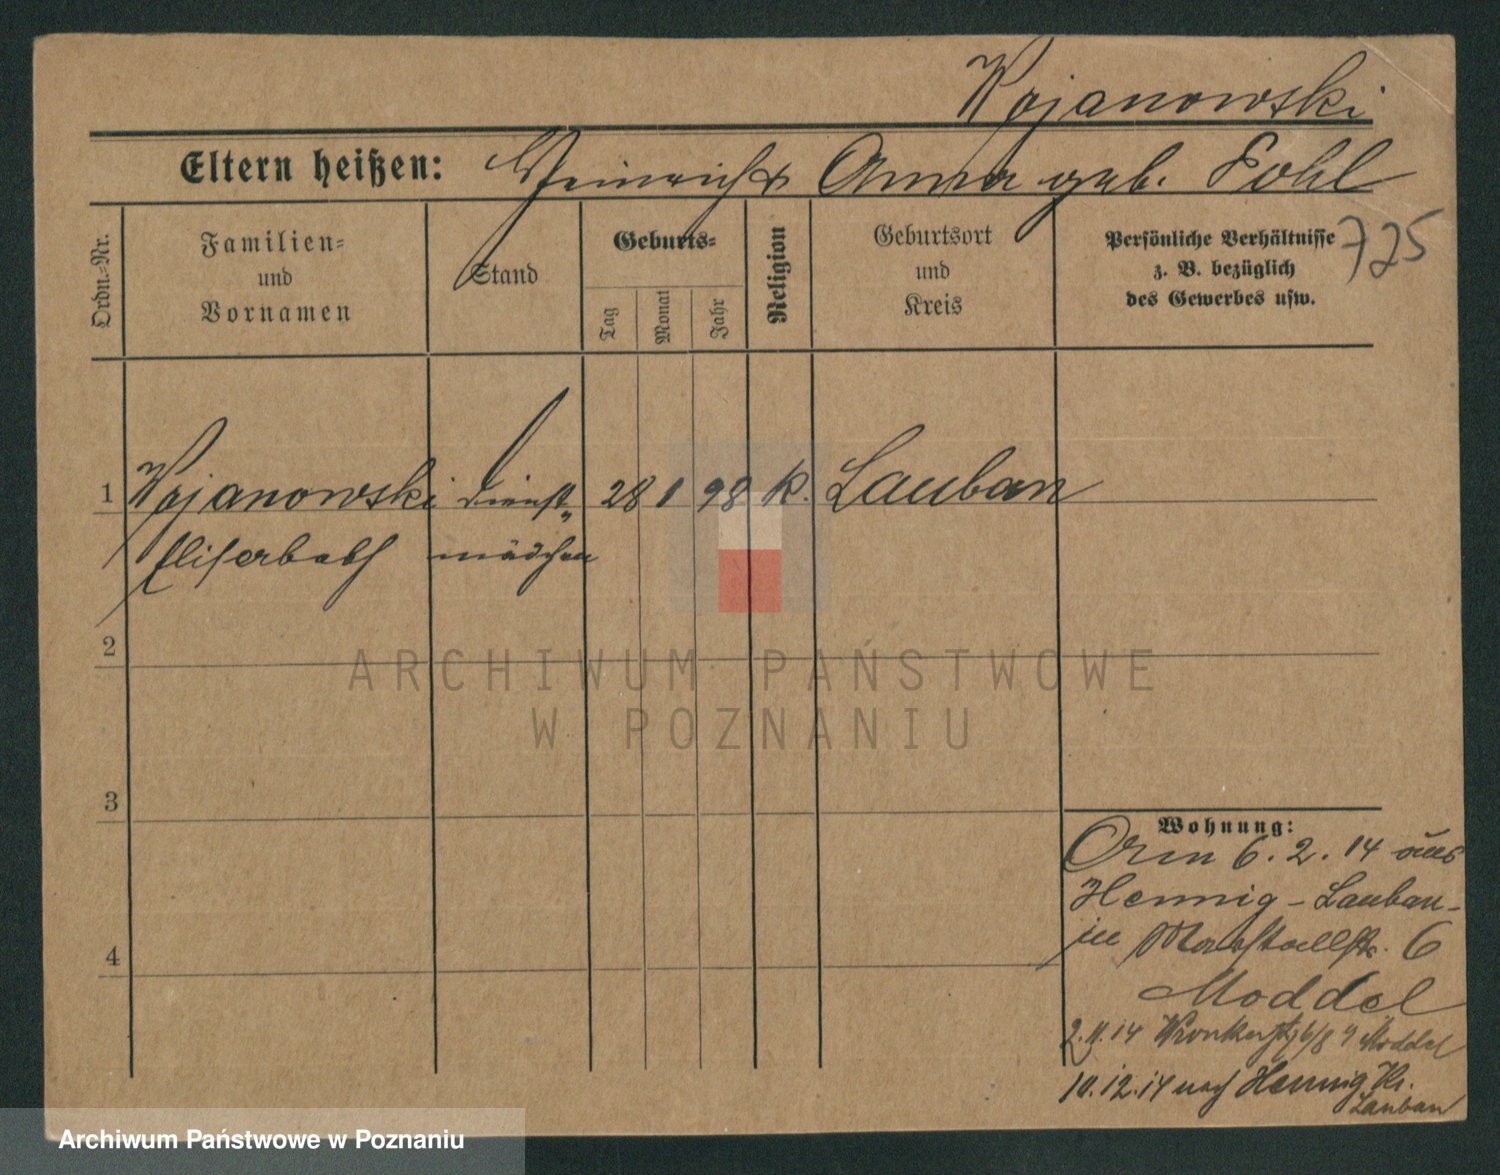 Wojanowski
Eltern heißen: Heinrich & Anna geb. Pohl
725
Ordn.-Nr.
Familien-
und
Vornamen
Stand
Geburts-
Tag
Monat
Jahr
Religion
Geburtsort
und
Kreis
Persönliche Verhältnisse
z. B. bezüglich
des Gewerbes usw.
1 Wojanowski Dienst- 28 1 98 k. Lauban
Elisabeth mädchen
2
3
4
Wohnung:
6. 2. 14 aus
Hennig - Lauban
in Marstallstr. 6
Moddel
2. 11. 14 Wronkerstr. Moddel
10. 12. 14 nach Hennig Kr.
Lauban
ARCHIWUM PAŃSTWOWE
W POZNANIU
Archiwum Państwowe w Poznaniu